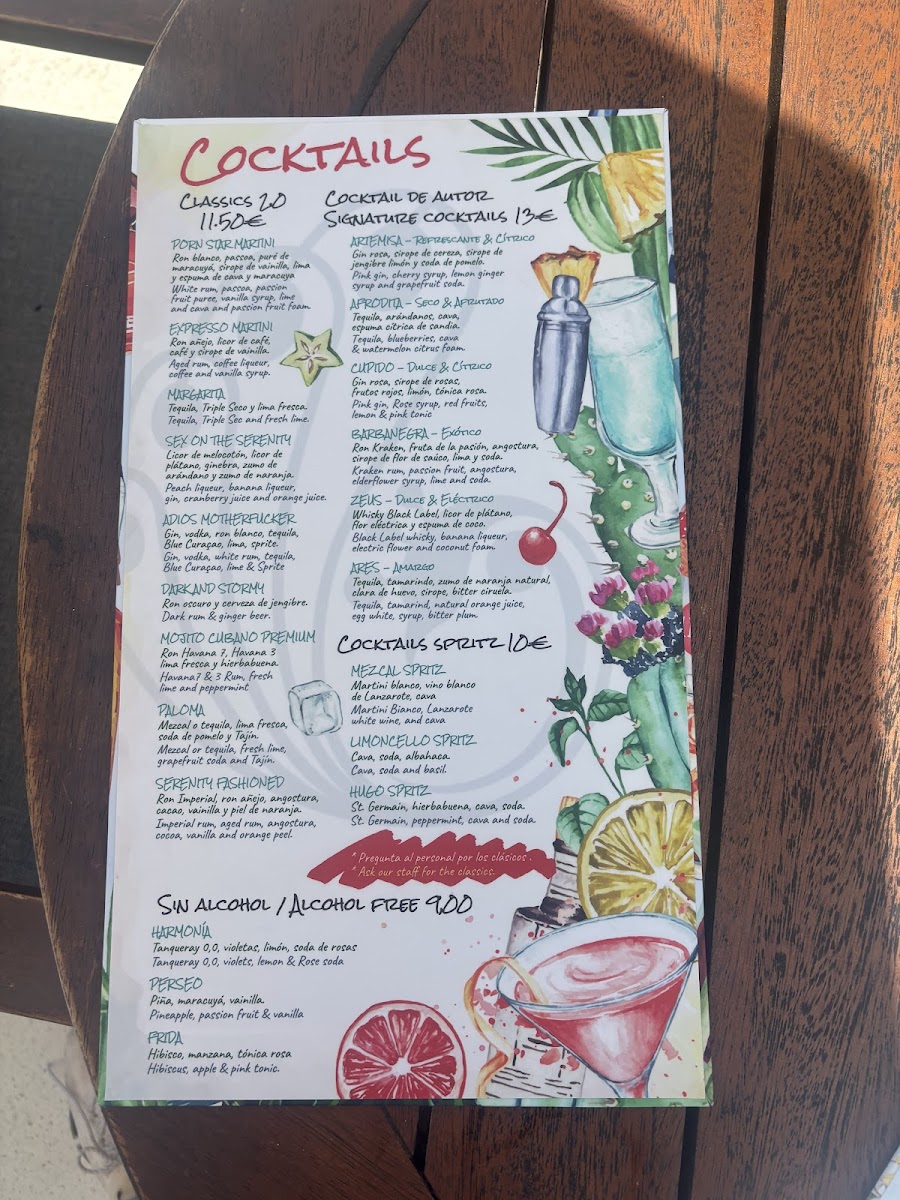 Cocktails
Classics 2.0
11.50€
PORN STAR MARTINI
Ron blanco, passoa, puré de
maracuyá, sirope de vainilla, lima
y espuma de cava y maracuya
White rum, passoa, passion
fruit puree, vanilla syrup, lime
and cava and passion fruit foam.
EXPRESSO MARTINI
Ron añejo, licor de café,
café y sirope de vainilla.
Aged rum, coffee liqueur,
coffee and vanilla syrup.
MARGARITA
Tequila, Triple Seco y lima fresca.
Tequila, Triple Sec and fresh lime.
SEX ON THE SERENITY
Licor de melocotón, licor de
plátano, ginebra, zumo de
arándano y zumo de naranja.
Peach liqueur, banana liqueur,
gin, cranberry juice and orange juice.
ADIOS MOTHERFUCKER
Gin, vodka, ron blanco, tequila,
Blue Curaçao, lima, sprite.
Gin, vodka, white rum, tequila,
Blue Curaçao, lime & Sprite
DARKAND STORMY
Ron oscuro y cerveza de jengibre.
Dark rum & ginger beer.
MOJITO CUBANO PREMIUM
Ron Havana 7, Havana 3
lima fresca y hierbabuena.
Havana7 & 3 Rum, fresh
lime and peppermint
PALOMA
Mezcal o tequila, lima fresca,
soda de pomelo y Tajín.
Mezcal or tequila, fresh lime,
grapefruit soda and Tajín.
SERENITY FASHIONED
Ron Imperial, ron añejo, angostura,
cacao, vainilla y piel de naranja.
Imperial rum, aged rum, angostura,
cocoa, vanilla and orange peel.
Cocktail de autor
Signature cocktails 13€
ARTEMISA – Refrescante & Cítrico
Gin rosa, sirope de cereza, sirope de
jengibre limón y soda de pomelo.
Pink gin, cherry syrup, lemon ginger
syrup and grapefruit soda.
AFRODITA – Seco & Afrutado
Tequila, arándanos, cava,
espuma cítrica de sandía.
Tequila, blueberries, cava
& watermelon citrus foam.
CUPIDO – Dulce & Cítrico
Gin rosa, sirope de rosas,
frutos rojos, limón, tónica rosa.
Pink gin, Rose syrup, red fruits,
lemon & pink tonic
BARBANEGRA – Exótico
Ron Kraken, fruta de la pasión, angostura,
sirope de flor de saúco, lima y soda.
Kraken rum, passion fruit, angostura,
elderflower syrup, lime and soda.
ZEUS – Dulce & Eléctrico
Whisky Black Label, licor de plátano,
flor eléctrica y espuma de coco.
Black Label whisky, banana liqueur,
electric flower and coconut foam.
ARES – Amargo
Tequila, tamarindo, zumo de naranja natural,
clara de huevo, sirope, bitter ciruela.
Tequila, tamarind, natural orange juice,
egg white, syrup, bitter plum.
Cocktails spritz 10€
MEZCAL SPRITZ
Martini blanco, vino blanco
de Lanzarote, cava
Martini Bianco, Lanzarote
white wine, and cava
LIMONCELLO SPRITZ
Cava, soda, albahaca.
Cava, soda and basil.
HUGO SPRITZ
St. Germain, hierbabuena, cava, soda.
St. Germain, peppermint, cava and soda.
* Pregunta al personal por los clásicos .
* Ask our staff for the classics.
Sin alcohol / Alcohol free 9,00
HARMONÍA
Tanqueray 0,0, violetas, limón, soda de rosas
Tanqueray 0,0, violets, lemon & Rose soda
PERSEO
Piña, maracuyá, vainilla.
Pineapple, passion fruit & vanilla
FRIDA
Hibisco, manzana, tónica rosa
Hibiscus, apple & pink tonic.